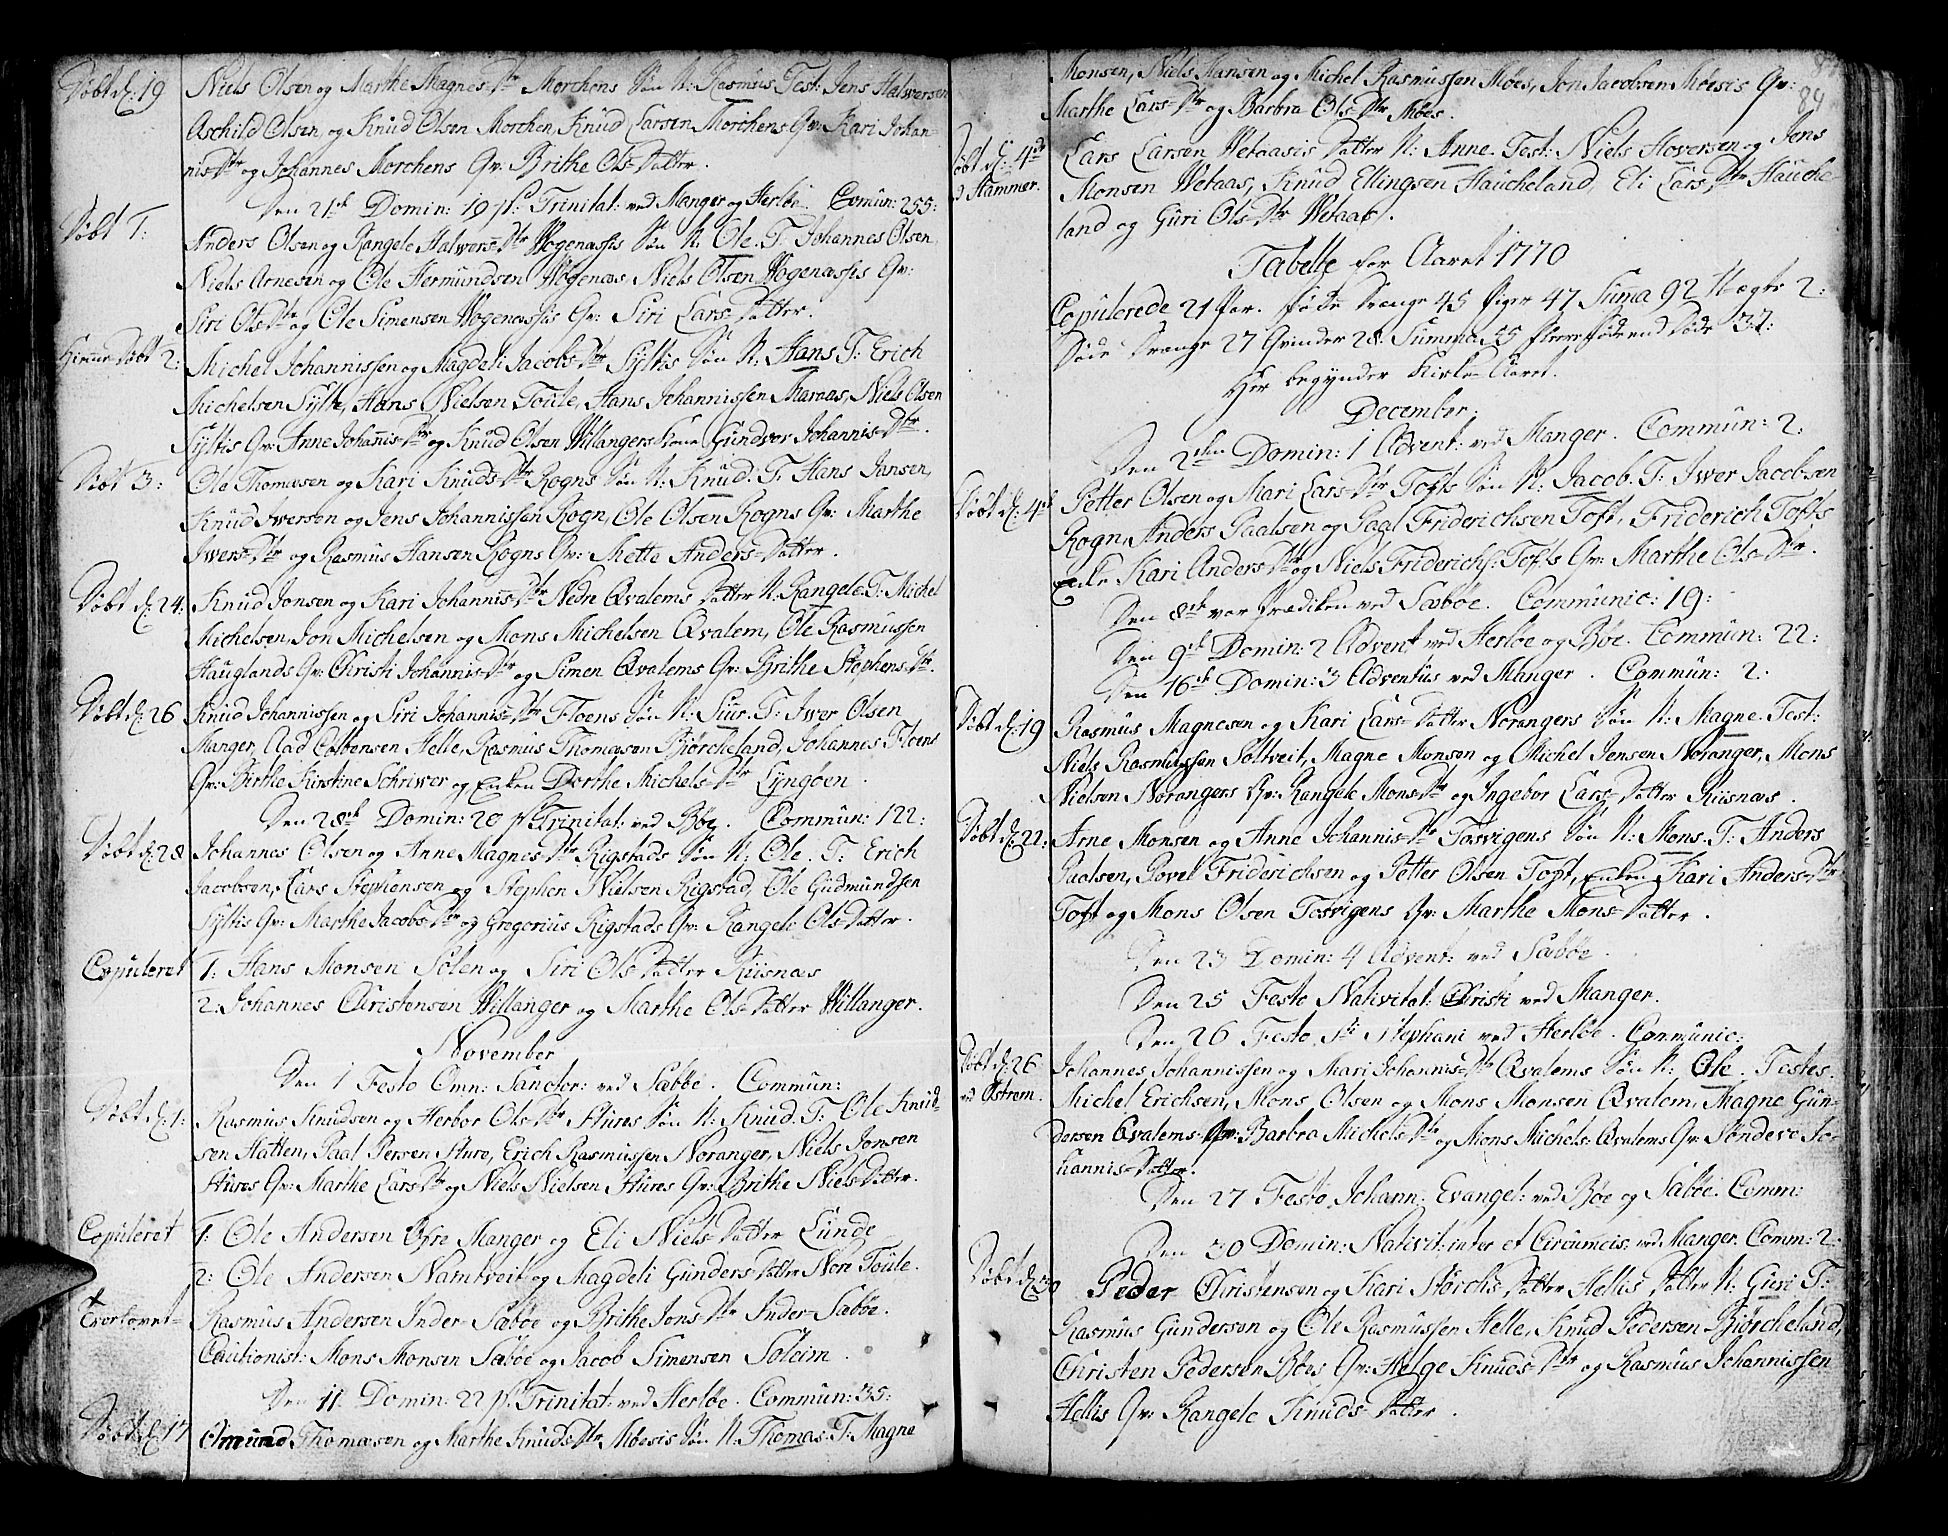 Døbt d: 19 Niels Olsen og Marthe Magnes-Dtr Morchens Søn N: Rasmus Test: Jens Halversen
Aschild Olsen, og Knud Olsen Morchen, Knud Larsen Morchens Qv: Kari Johan-
nis-Dtr og Johannes Morchens Qv: Brithe Ols-Datter.
Den 21de Domin: 19 p: Trinitat: ved Manger og Herløe. Comun: 255:
Døbt 1: Anders Olsen og Rangele Halvers-Dtr Wogenæssis Søn N: Ole. T: Johannes Olsen,
Niels Arnesen og Ole Hermundsen Wogenæs, Niels Olsen Wogenæssis Qv:
Siri Ols-Dtr og Ole Simensen Wogenæssis Qv: Siri Lars-Datter.
Hiemme Døbt 2: Michel Johannissen og Magdeli Jacobs-Dtr Syltis Søn N: Hans T: Erich
Michelsen Sylte, Hans Nielsen Toule, Hans Johannissen Maraas, Niels Olsen
Syltis Qv: Anne Johannis-Dtr og Knud Olsen Willangers Kone Gundvor Johannis-Dtr.
Døbt 3: Ole Thomæsen og Kari Knuds-Dtr Rogns Søn N: Knud. T: Hans Jansen,
Knud Iversen og Jens Johannissen Rogn, Ole Olsen Rogns Qv: Marthe
Iwers-Dtr og Rasmus Hansen Rogns Qv: Mette Anders-Datter.
Døbt d: 24: Knud Jonsen og Kari Johannis-Dtr Nedre Qvalems Datter N: Rangele T: Michel
Michelsen, Jon Michelsen og Mons Michelsen Qvalem, Ole Rasmussen
Hauglands Qv: Christi Johannis-Dtr og Simen Qvalems Qv: Brithe Stephens-Dtr.
Døbt d: 26 Knud Johannissen og Siri Johannis-Dtr Floens Søn N: Siur. T: Iwer Olsen
Manger, Aad Colbensen Helle, Rasmus Thomæsen Biørcheland, Johannes Floens
Qv: Birthe Kirstine Schriwer og Enken Dorthe Michels-Dtr Lyngøen.
Den 28de Domin: 20 p: Trinitat: ved Bøe. Commun: 122:
Døbt d: 28 Johannes Olsen og Anne Magnes-Dtr Rigstads Søn N: Ole. T: Erich
Jacobsen, Lars Stephensen og Stephen Nielsen Rigstad, Ole Gudmundsen
Syltis Qv: Marthe Jacobs-Dtr og Gregorius Rigstads Qv: Rangele Ols-Datter.
Copuleret 1: Hans Monsen Solen og Siri Ols Datter Riisnæs
2: Johannes Christensen Willanger og Marthe Ols-Datter Willanger.
November
Den 1 Festo Omn: Sanctor: ved Sæbøe. Commun:
Døbt d: 1: Rasmus Knudsen og Herbor Ols-Dtr Stures Søn N: Knud. T: Ole Knud-
sen Hatten, Paal Persen Sture, Erich Rasmussen Noranger, Niels Jonsen
Stures Qv: Marthe Lars-Dtr og Niels Nielsen Stures Qv: Brithe Niels-Datter.
Copuleret 1: Ole Andersen Øfre Manger og Eli Niels-Datter Lunde
2: Ole Andersen Namtveit og Magdeli Gunders-Datter Nore Toule.
Trorlovet Rasmus Andersen Inder-Sæbøe og Brithe Jons-Dtr Inder-Sæbøe.
Cautionist: Mons Monsen Sæbøe og Jacob Simensen Soleim.
Den 11 Domin: 22 p: Trinitat: ved Herløe. Commun: 35:
Døbt d: 17 Omund Thomæsen og Marthe Knuds-Dtr Moesis Søn N. Thomas. T: Magne
89
Monsen, Niels Hansen og Michel Rasmussen Moes, Jon Jacobsen Moesis Qv:
Marthe Lars-Dtr og Barbra Ols-Dtr Moes.
Døbt d: 4de Lars Larsen Wetaasis Datter N: Anne. Test: Niels Hoversen og Jens
i Hammer. Monsen Wetaas, Knud Ellingsen Haucheland, Eli Lars-Dtr Hauche-
land og Guri Ols Dtr Wetaas.
Tabelle for Aaret 1770
Copulerede 21 Par. Fødde Drenge 45 Piger 47 Summa 92 Uægte 2:
Døde Drenge 27 Qvinder 28. Summa 55 fleere fødde end døde 37:
Her begynder Kirke-Aaret.
December.
Den 2den Domin: 1 Advent: ved Manger. Commun: 2:
Døbt d: 4de Petter Olsen og Mari Lars-Dtr Tofts Søn N: Jacob. T: Iwer Jacobsen
Rogn, Anders Paalsen og Paal Friderichsen Toft, Friderich Tofts
Enke Kari Anders Dtr og Niels Friderichs: Tofts Qv: Marthe Ols-Dtr.
Den 8de var Prædiken ved Sæbøe. Communic: 19:
Den 9de Domin: 2 Advent ved Herløe og Bøe. Commun: 22:
Den 16de Domin: 3 Adventus ved Manger. Commun: 2:
Døbt d: 19 Rasmus Magnesen og Kari Lars-Datter Norangers Søn N: Magne. Test:
Niels Rasmussen Soltveit, Magne Monsen og Michel Jensen Noranger, Mons
Nielsen Norangers Qv: Rangele Mons-Dtr og Ingebor Lars-Datter Riisnæs.
Døbt d: 22: Arne Monsen og Anne Johannis-Dtr Tosvigens Søn N: Mons. T: Anders
Paalsen, Povel Friderichsen og Petter Olsen Toft, Enken Kari Anders-Dtr
Toft og Mons Olsen Tosvigens Qv: Marthe Mons-Datter.
Den 23 Domin: 4 Advent: ved Sæbøe.
Den 25 Festo Nativitat: Christi ved Manger.
Den 26 Festo Sti Stephani ved Herløe. Communic:
Døbt d: 26 Johannes Johannissen og Mari Johannis-Dtr Qvalems Søn N: Ole. Testes
ved Østrem. Michel Erichsen, Mons Olsen og Mons Monsen Qvalem, Magne Gun-
dersen Qvalems Qv: Barbra Michels-Dtr og Mons Michels: Qvalems Qv: Søndeve Jo-
hannis-Datter.
Den 27 Festo Johann: Evangel: ved Bøe og Sæbøe. Comm:
Den 30 Domin: Nativit: inter et Circumcis: ved Manger. Comm: 2:
Døbt d: 30 Peder Christensen og Kari Størchs Datter Hellis Datter N: Guri T:
Rasmus Gundersen og Ole Rasmussen Helle, Knud Pedersen Biørcheland,
Christen Pedersen Bøes Qv: Helge Knuds-Dtr og Rasmus Johannissen
Hellis Qv: Rangele Knuds-Datter.